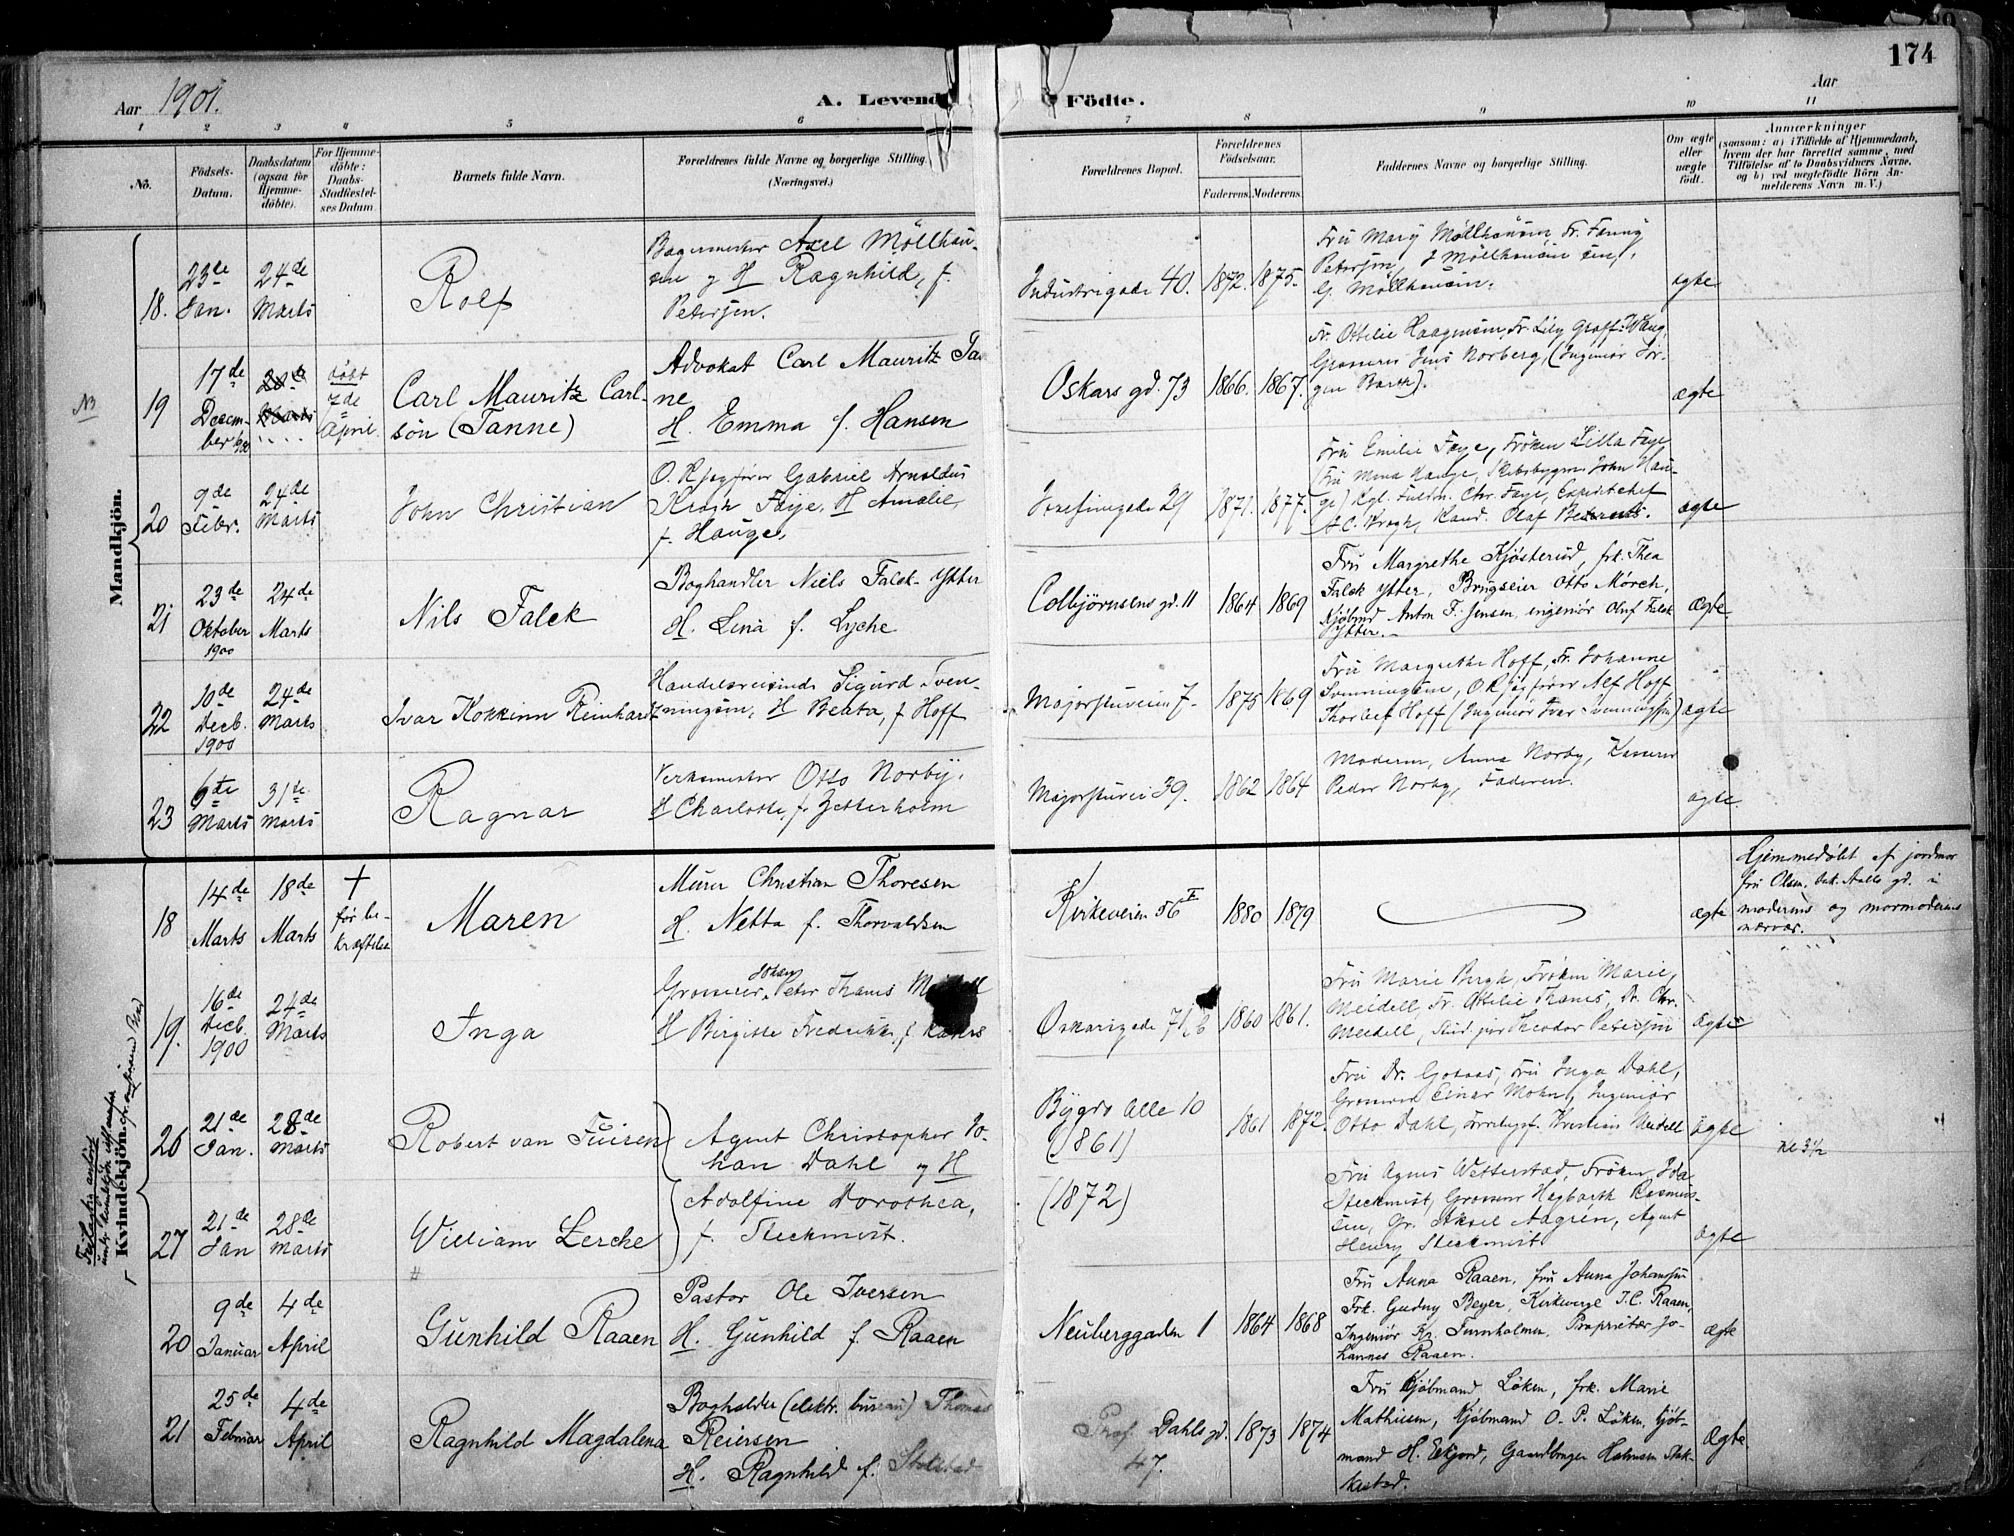 174
Aar 1901.
A. Levende Födte.
Aar
1 2 3 4 5 6 7 8 9 10 11
No.
Födsels-
Datum.
Daabsdatum
(ogsaa for
Hjemme-
döbte).
For Hjemme-
döbte:
Daabs-
Stadfæstel-
ses Datum.
Barnets fulde Navn.
Forældrenes fulde Navne og borgerlige Stilling.
(Næringsvei.)
Forældrenes Bopæl.
Forældrenes
Födselsaar.
Faderens. Moderens.
Faddernes Navne og borgerlige Stilling.
Om ægte
eller
uægte
födt.
Anmærkninger
(saasom: a) i Tilfælde af Hjemmedaab,
hvem der har forrettet samme, med
Tilföielse af to Daabsvidners Navne,
og b) ved uægtefödte Börn An-
melderens Navn m. V.)
Mandkjön.
18. 23de Jan. 24de Marts
Rolf
Bagermester Axel Möllhau-
sen og H Ragnhild, f.
Petersen.
Industrigade 40. 1872. 1875.
Fru Mary Möllhausen, Fr. Fanny
Petersen, J Möllhausen sen,
G. Möllhausen.
ægte
NB
19 17de Decem-
ber 1900
döbt
7de
April
Carl Mauritz Carl-
sön (Tanne)
Advokat Carl Mauritz Tan
ne
H. Emma f. Hansen
Oskars gd. 73 1866. 1867.
Fr. Ottilie Haagensen, Fr. Lily Graff-Wang
Grosserer Jens Norberg, (Ingeniør Jör-
gen Barth).
ægte
20 9de Febr. 24de Marts
John Christian
O.R.sagfører Gabriel Arnoldus
Krogh Faye, H Amalie,
f. Hauge,
Josefinegade 29 1871. 1877.
Fru Emilie Faye, Fröken Lilla Faye
Fru Mona Hauge, Skibsbygger John Hau-
ge) Kgl. Fuldm. Chr. Faye, Expeditchef
A.C. Krogh, Kand. Olaf
ægte
21 23de Oktober 1900 24de Marts
Nils Falck
Boghandler Niels Falck-Ytter
H. Lina f. Lyche
Colbjörnsens gd. 11 1864 1869
Fru Margrethe Kjösterud, frk. Thea
Falck Ytter, Brugseier Otto Mörch,
Kjöbmd Anton F. Jensen, ingeniör Oluf Falck
Ytter.
Ægte.
22 10de Decb. 1900 24de Marts
Ivar Kokkinn Reinhardt
Handelsreisende Sigurd Sven-
ningsen, H Beata, f Hoff
Majorstuveien 7. 1875 1869
Fru Margrethe Hoff, Fr. Johanne
Svenningsen, O.R.sagfører Alf Hoff
Thorleif Hoff (Ingeniør Ivar Svenningsen)
ægte
23 6te Marts 31te Marts
Ragnar
Verksmester Otto Norby.
H Charlotte, f. Zetterholm
Majorstuvei 39. 1862 1864
Moderen, Anna Norby, Kasserer
Peder Norby, Faderen.
ægte.
Kvindekjön.
18 14de Marts 18de Marts
†
før be-
kræftelse
Maren
Murer Christian Thoresen
H. Netta f. Thorvaldsen
Kirkeveien 56 1880 1879
ægte
Hjemmedøbt af jordmor
fru Olsen, i
moderens og mormoderens
nærvær.
19. 16de Decb. 1900 24de Marts
Inga
Grosserer Johan Peter Thams
H Birgitte Fredrikke f.
Oskarsgade 71,b 1860 1861.
Fru Marie Bergh, Fröken Marie
Meidell, Fr. Ottilie Thams, Dr. Chr.
Meidell, Stud. jur Theodor Petersen
Ægte
26 21de Jan. 28de Marts
Robert van Tuiren
Agent Christopher Jo-
han Dahl og H
Bygdö Alle 10
(1861)
1861 1872.
Fru Dr. Gotaas, Fru Inga Dahl,
Grosserer Einar Mohn, Ingeniør
Otto Dahl, Kristian Meidell
ægte
Kl 3½
27 21de Jan 28de Marts
William Lerche
Adolfine Dorothea,
f. Steckmest.
(1872)
Fru Agnes Wetterstad, Fröken Ida
Steckmest, Grosserer Hagbarth Rasmus-
sen, Gr. Aksel Aagrén, Agent
Henry Steckmest
ægte
20 9de Januar 4de April
Gunhild Raaen
Pastor Ole Iversen
H. Gunhild f. Raaen
Neuberggaden 1 1864 1868
Fru Anna Raaen, fru Anna Johansen
Frk. Gudny Beyer, Kirkeverge I.C. Raaen,
Ingeniör Kr. Turnholmen, Proprietær Jo-
hannes Raaen.
ægte
21 25de Februar 4de April
Ragnhild Magdalena
Bogholder (elektr. bureau) Thomas
Reiersen
H. Ragnhild f.
Prof. Dahls gd.
47.
1873 1874
Fru Kjöbmand Löken, frk. Marie
Mathiesen, Kjöbmand O. P. Löken, Kjöb-
mand H. Ekjord, Gaardbruger Halvosen Stok-
kestad.
Ægte.